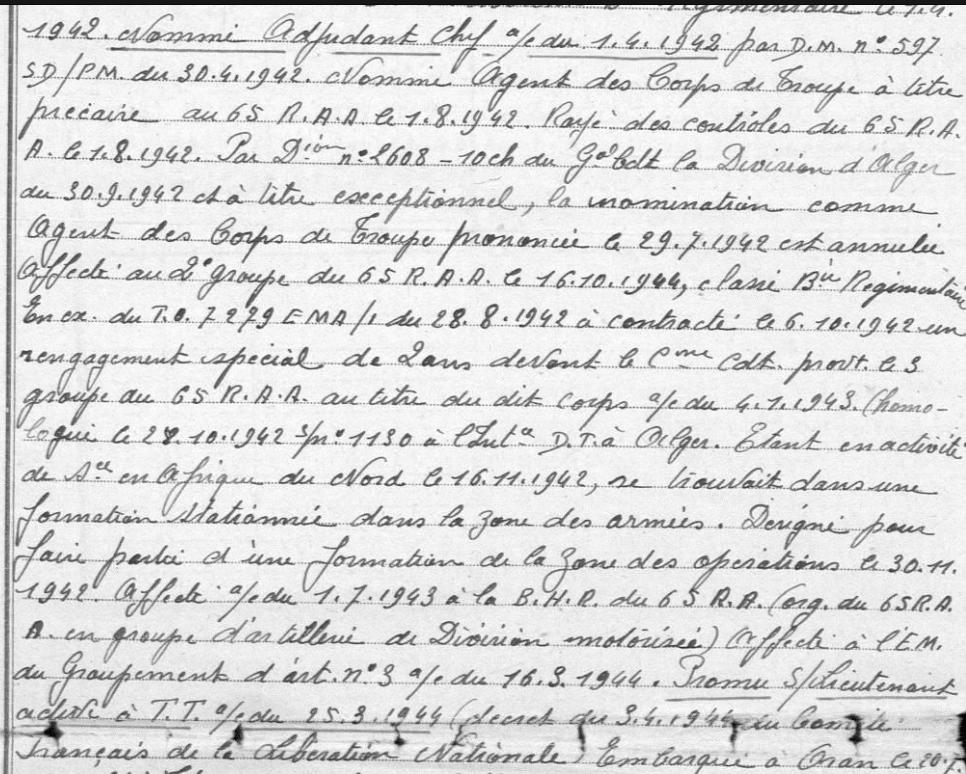 Régimentaire le 1.4.
1942. Nommé Adjudant Chef a/c du 1.4.1942 par D.M. n° 597
SD/PM. du 30.4.1942. Nommé Agent des Corps de Troupe à titre
précaire au 65 R.A.A. le 1.8.1942. Rayé des contrôles du 65 R.A.
A. le 1.8.1942. Par Dion n° 2608 - 10ch du Gal Cdt la Division d'Alger
du 30.9.1942 et à titre exceptionnel, la nomination comme
Agent des Corps de Troupe prononcée le 29.7.1942 est annulée
Affecté au 2e groupe du 65 R.A.A. le 16.10.1944, classé Bie Régimentaire
En ex. du T.O. 7279 EMA/1 du 28.8.1942 à contracté le 6.10.1942 un
rengagement spécial de 2 ans devant le Cne Cdt. provt. le 3
groupe du 65 R.A.A. au titre du dit corps a/c du 4.1.1943. (homo-
logué le 28.10.1942 s/n° 1130 à l'Intce D.T. à Alger. Etant en activité
de Sce en Afrique du Nord le 16.11.1942, se trouvait dans une
formation stationnée dans la zone des armées. Désigné pour
faire partie d'une formation de la zone des opérations le 30.11.
1942. Affecté a/c du 1.7.1943 à la B.H.R. du 65 R.A. (org. du 65 R.A.
A. en groupe d'artillerie de Division motorisée) Affecté à l'EM.
du Groupement d'art. n° 3 a/c du 16.3.1944. Promu S/Lieutenant
active à T.T. a/c du 25.3.1944 (décret du 3.4.1944 du Comité
Français de la Libération Nationale) Embarqué à Oran le 20.7.